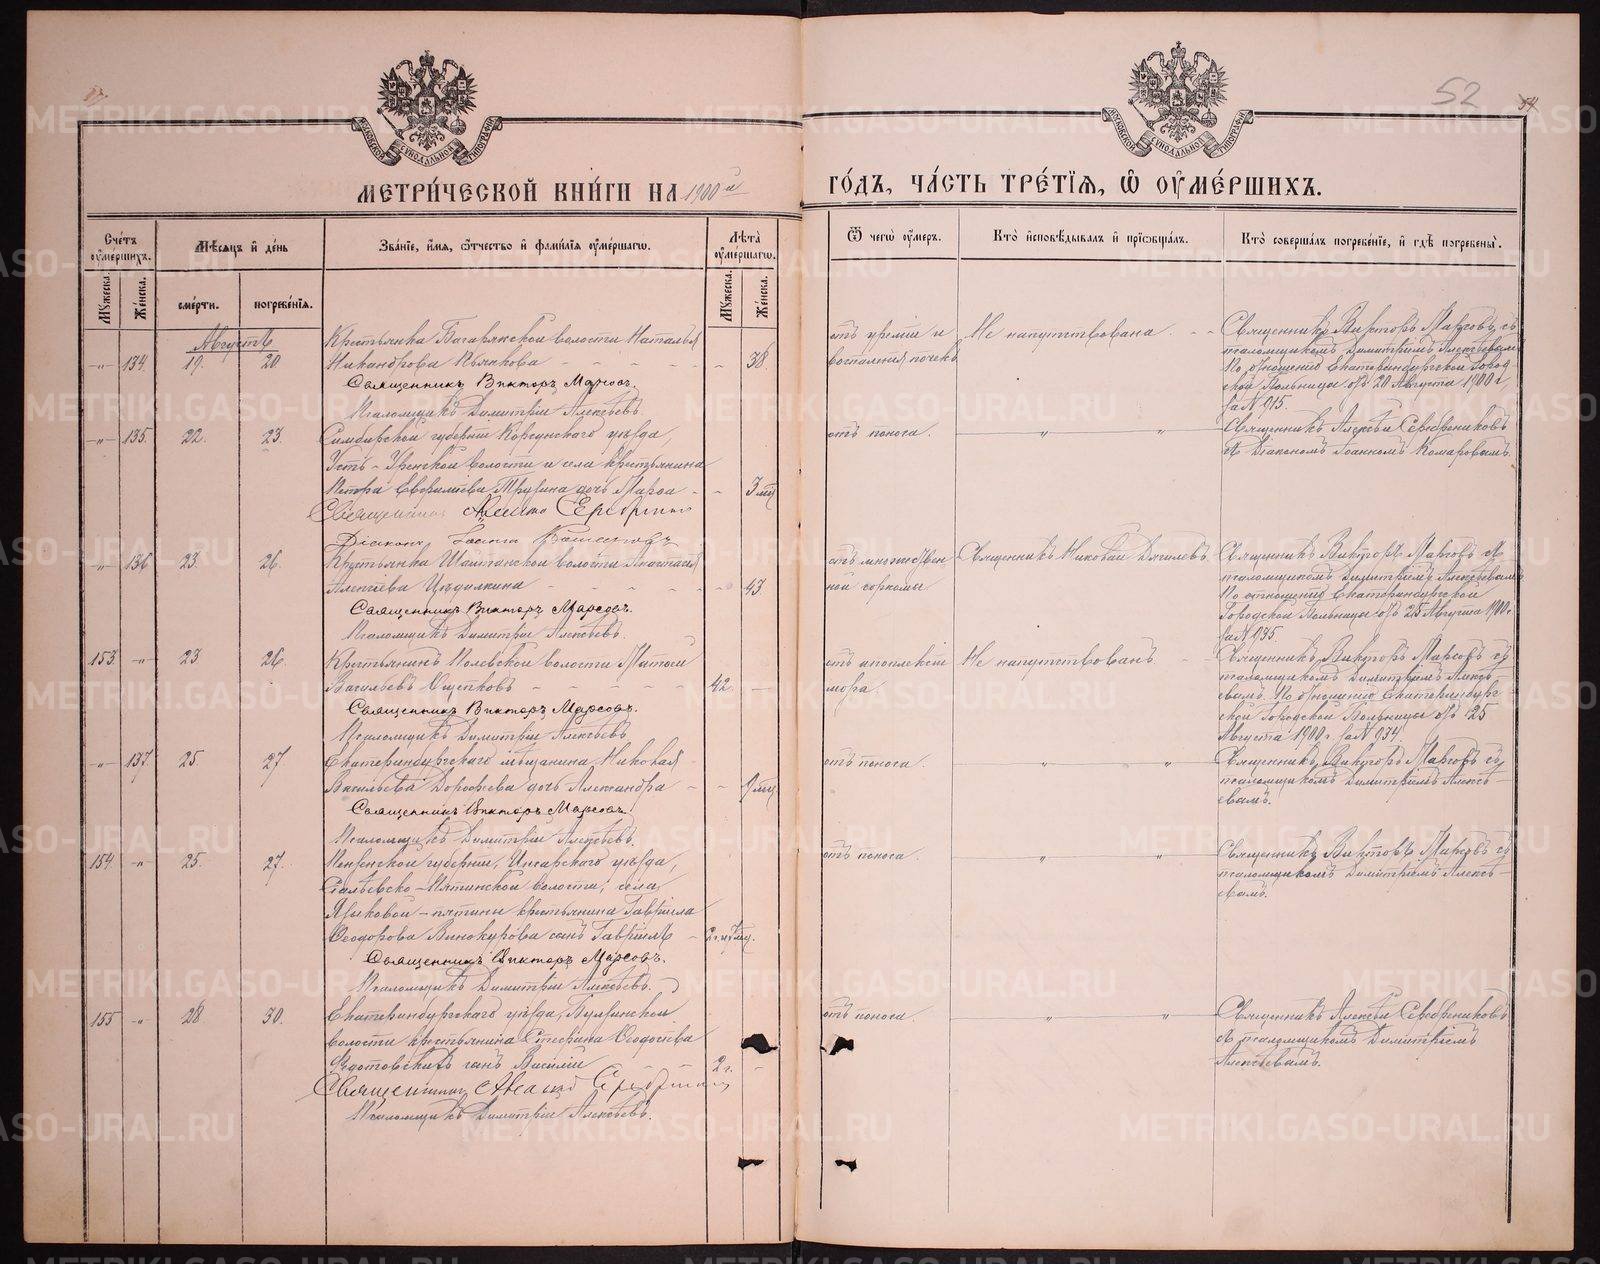 52
МЕТРИ́ЧЕСКОЙ КНИ́ГИ НА 1900 й
ГО́ДЪ, ЧА́СТЬ ТРЕ́ТЇѦ, Ѡ ОУ҆МЕ́РШИХЪ.
Сче́тъ оу҆ме́ршихъ.
Мѣ́сяцъ и҆ де́нь
Зва́нїе, и҆́мѧ, ѻ҆́тчество и҆ фами́лїѧ оу҆ме́ршагѡ.
Лѣта̀ оу҆ме́ршагѡ.
Ѿ чегѡ̀ оу҆́меръ.
Кто̀ и҆сповѣ́дывалъ и҆ прїѡбща́лъ.
Кто̀ соверша́лъ погребе́нїе, и҆ гдѣ̀ погребены̀.
Мꙋ́жеска.
Же́нска.
сме́рти.
погребе́нїѧ.
Мꙋ́жеска.
Же́нска.
Августъ
134. 19. 20.
Крестьянка Багарякской волости Наталья
Никандрова Пьянкова 38.
Священникъ Викторъ Марсовъ.
Псаломщикъ Димитрій Алексѣевъ.
отъ уреміи и
воспаленія почекъ
Не напутствована.
Священникъ Викторъ Марсовъ съ
псаломщикомъ Димитріемъ Алексѣевымъ
По отношенію Екатеринбургской Город-
ской Больницы отъ 20 Августа 1900 г.
за № 915.
135. 22. 23.
Симбирской губерніи Корсунскаго уѣзда,
Усть-Уренской волости и села крестьянина
Петра Трусина дочь Марѳа 3 мѣс
Священникъ
Діаконъ Іоаннъ Комаровъ
отъ поноса.
Священникъ Алексѣй Серебренниковъ
съ Діакономъ Іоанномъ Комаровымъ.
136 23. 26.
Крестьянка Шайтанской волости Анастасія
Алексѣева 43.
Священникъ Викторъ Марсовъ.
Псаломщикъ Димитрій Алексѣевъ.
отъ множествен
ной саркомы.
Священникъ Николай Дягилевъ.
Священникъ Викторъ Марсовъ съ
псаломщикомъ Димитріемъ Алексѣевымъ
По отношенію Екатеринбургской
Городской Больницы отъ 25 Августа 1900 г.
за № 935.
153. 23 26.
Крестьянинъ Полевской волости Матѳей
Васильевъ Ощепковъ 42.
Священникъ Викторъ Марсовъ.
Псаломщикъ Димитрій Алексѣевъ.
отъ апоплексіи
мозга.
Не напутствованъ
Священникъ Викторъ Марсовъ съ
псаломщикомъ Димитріемъ Алексѣ-
евымъ. По отношенію Екатеринбург
ской Городской Больницы отъ 25
Августа 1900 г. за № 934.
137. 25. 27.
Екатеринбургскаго мѣщанина Николая
Васильева Дорофеева дочь Александра мѣс
Священникъ Викторъ Марсовъ.
Псаломщикъ Димитрій Алексѣевъ.
отъ поноса.
Священникъ Викторъ Марсовъ съ
псаломщикомъ Димитріемъ Алексѣ-
евымъ.
154. 25. 27.
Пензенской губерніи, Инсарскаго уѣзда,
волости, села
пятины крестьянина Гавріила
Ѳеодорова Винокурова сынъ Гавріилъ 2 г. и мѣс.
Священникъ Викторъ Марсовъ.
Псаломщикъ Димитрій Алексѣевъ.
отъ поноса.
Священникъ Викторъ Марсовъ съ
псаломщикомъ Димитріемъ Алексѣ-
евымъ.
155 28 30.
Екатеринбургскаго уѣзда,
волости крестьянина
сынъ Василій 2 г.
Священникъ
Псаломщикъ Димитрій Алексѣевъ.
отъ поноса.
Священникъ Алексѣй Серебренниковъ
съ псаломщикомъ Димитріемъ
Алексѣевымъ.
METRIKI.GASO-URAL.RU